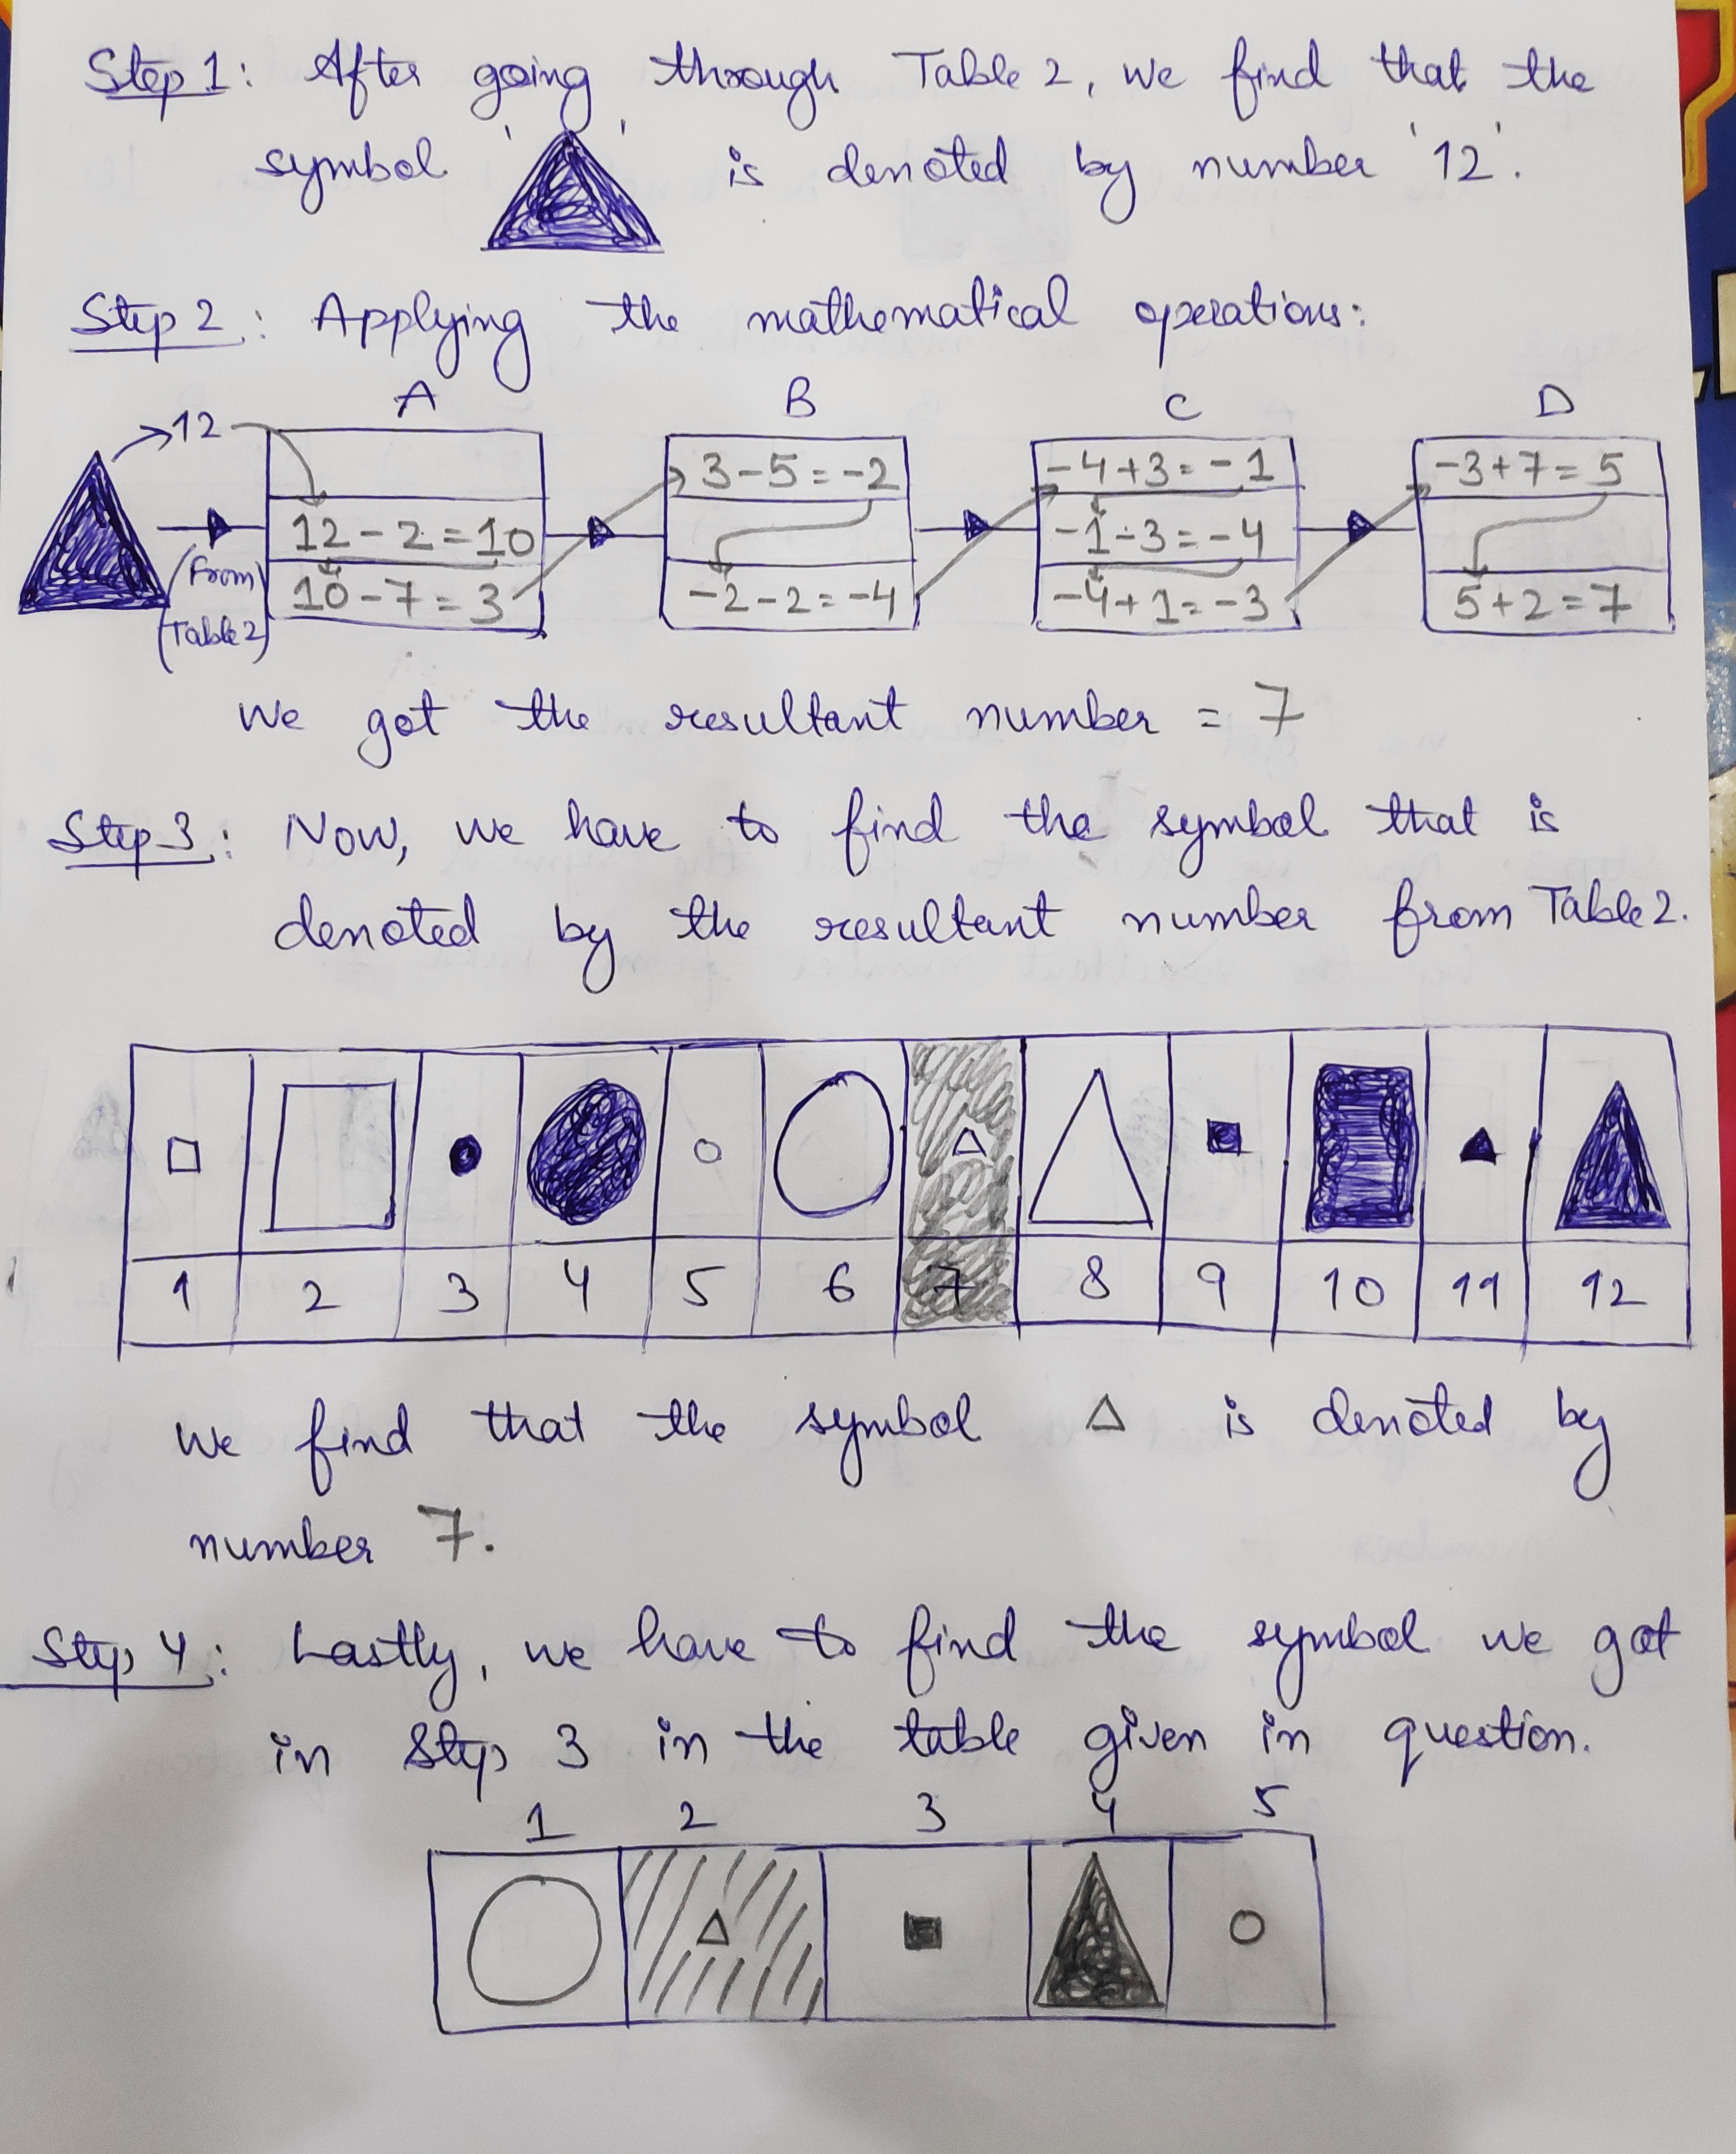 Step 1: After going through Table 2, we find that the
symbol ' ' is denoted by number '12'.
Step 2: Applying the mathematical operations:
A B C D
12
12 - 2 = 10
10 - 7 = 3
(From
Table 2)
3 - 5 = -2
-2 - 2 = -4
-4 + 3 = -1
-1 - 3 = -4
-4 + 1 = -3
-3 + 7 = 5
5 + 2 = 7
We got the resultant number = 7
Step 3: Now, we have to find the symbol that is
denoted by the resultant number from Table 2.
1 2 3 4 5 6 7 8 9 10 11 12
We find that the symbol △ is denoted by
number 7.
Step 4: Lastly, we have to find the symbol we got
in Step 3 in the table given in question.
1 2 3 4 5